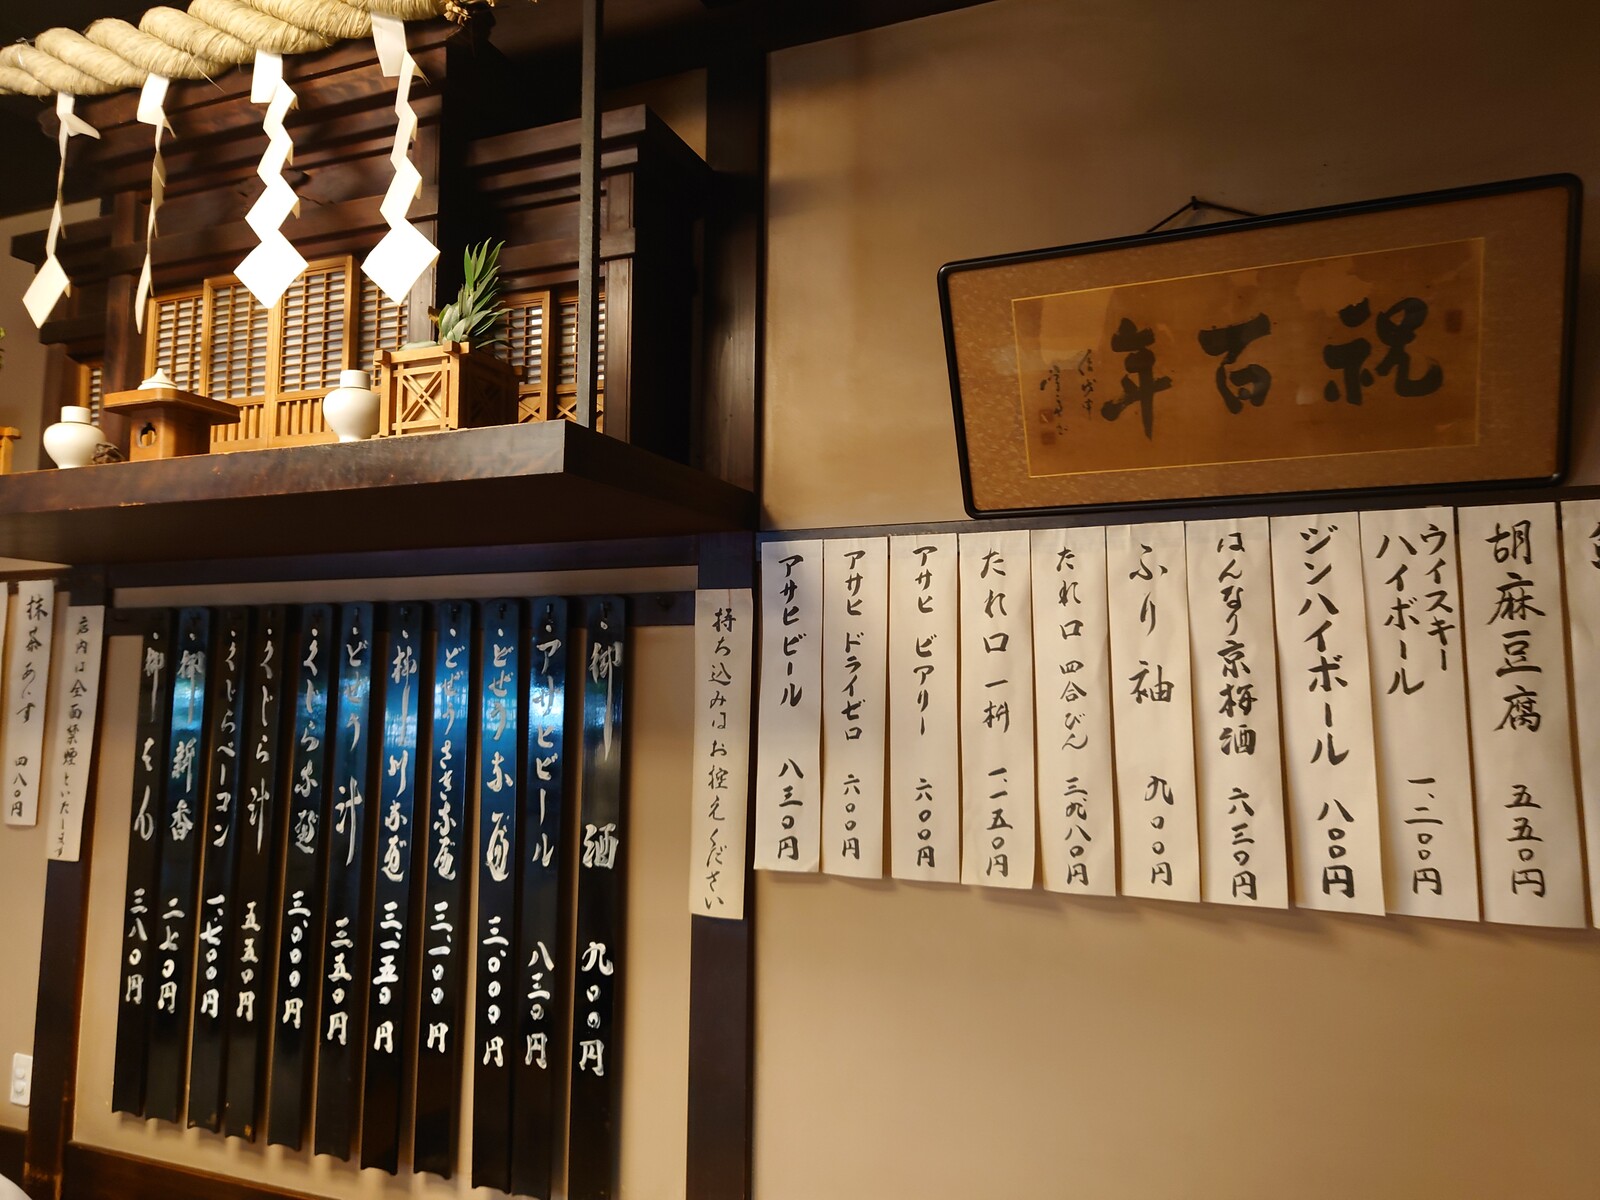 祝百年
胡麻豆腐 五五〇円
ウィスキー
ハイボール 一、二〇〇円
ジンハイボール 八〇〇円
はんなり京梅酒 六三〇円
ふり袖 九〇〇円
たれ口 四合びん 三、九八〇円
たれ口 一枡 一、一五〇円
アサヒ ビアリー 六〇〇円
アサヒ ドライゼロ 六〇〇円
アサヒビール 八三〇円
持ち込みはお控えください
御酒 九〇〇円
アサビール 八三〇円
どぜうなべ 三、〇〇〇円
どぜうさきなべ 三、一〇〇円
柳川なべ 三、一五〇円
どぜう汁 三五〇円
くじらなべ 三、〇〇〇円
くじら汁 五五〇円
くじらベーコン 一、七〇〇円
御新香 二七〇円
御はん 三八〇円
店内は全面禁煙といたします
抹茶あいす 四八〇円